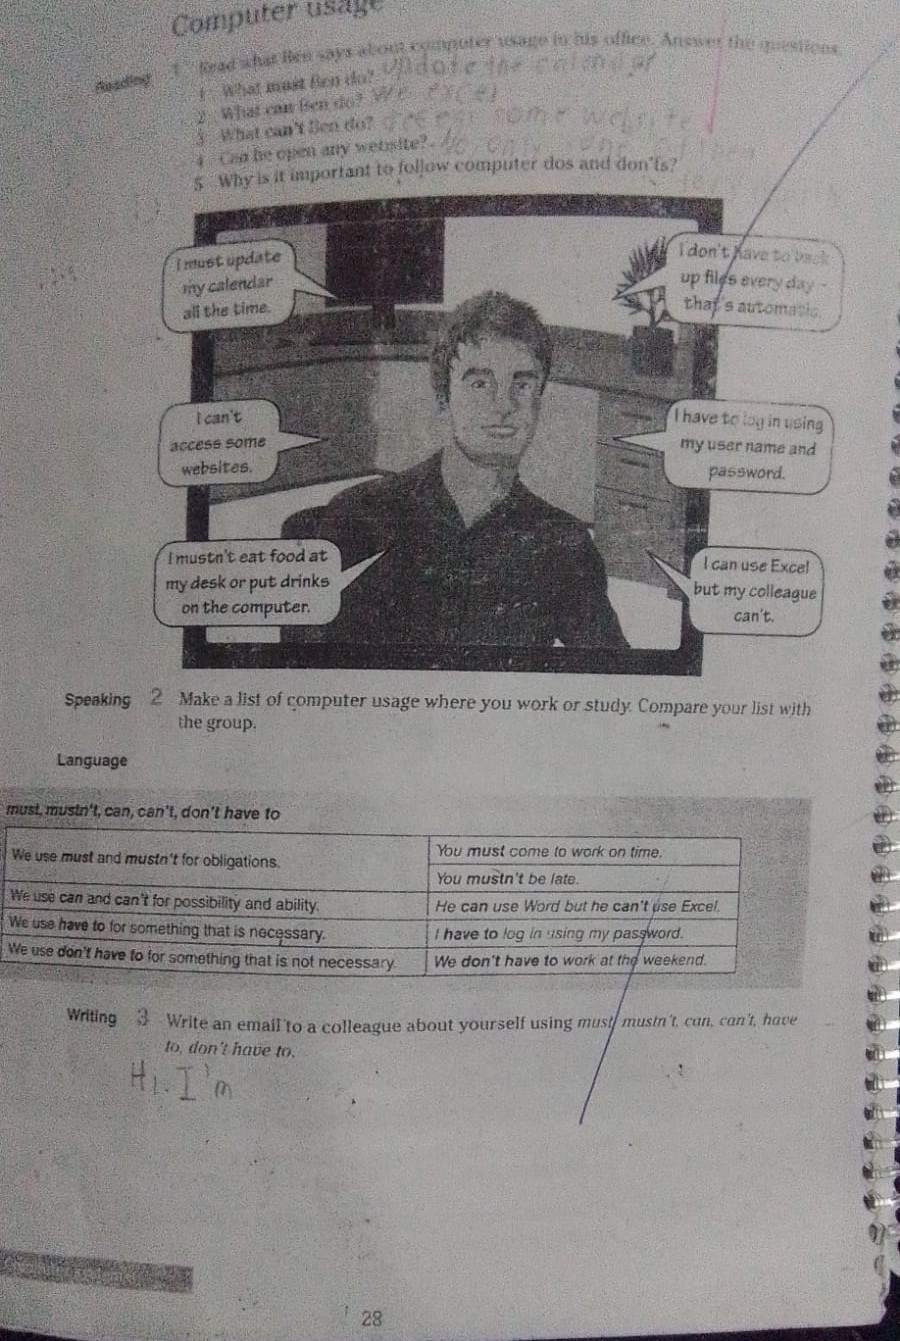 Computer usage
Reading 1 Read what Ben says about computer usage in his office. Answer the questions.
1 What must Ben do? update the calendar
2 What can Ben do? We excel
3 What can't Ben do? some website
4 Can he open any website? No, only some of them
5 Why is it important to follow computer dos and don'ts?
I must update
my calendar
all the time.
I don't have to back
up files every day –
that's automatic.
I can't
access some
websites.
I have to log in using
my user name and
password.
I mustn't eat food at
my desk or put drinks
on the computer.
I can use Excel
but my colleague
can't.
Speaking 2 Make a list of computer usage where you work or study. Compare your list with
the group.
Language
must, mustn't, can, can't, don't have to
We use must and mustn't for obligations.
You must come to work on time.
You mustn't be late.
We use can and can't for possibility and ability.
He can use Word but he can't use Excel.
We use have to for something that is necessary.
I have to log in using my password.
We use don't have to for something that is not necessary.
We don't have to work at the weekend.
Writing 3 Write an email to a colleague about yourself using must, mustn't, can, can't, have
to, don't have to.
Hi. I'm
28